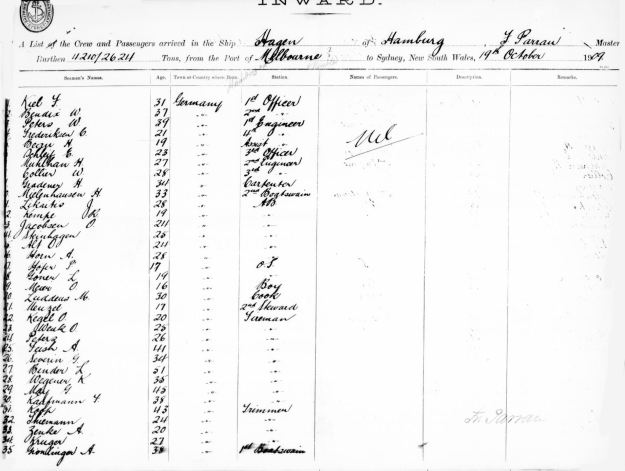 INWARD.
A List of the Crew and Passengers arrived in the Ship Hagen of Hamburg F Parrau Master
Burthen 4210/2624 Tons, from the Port of Melbourne to Sydney, New South Wales, 19th October 1909
Seamen's Names. Age. Town or Country where Born. Station. Names of Passengers. Description. Remarks.
Kiel F. 31 Germany 1st Officer
2 Bendix W 37 " 2nd "
Peters W 39 " 1st Engineer
Frederiksen C. 21 " 4th "
H 19 " Assist "
E. 23 " 3rd Officer
Muhlhan H 27 " 2nd Engineer
Collier W 28 " 3rd "
H 34 " Carpenter
Mielenhausen H 33 " 2nd Boatswain
J. 28 " AB
2 Kempe 19 "
3 Jacobsen O 24 "
Steinhagen 25 "
Alf O 24 "
Horn A. 28 "
Hofer P 17 " O.S
Goner L 19 " "
Meier O 16 " Boy
Luddens M. 30 " Cook
Menzel 17 " 2nd Steward
22 Kegel O. 20 " Fireman
23 Wenk O 25 " "
24 Peters 26 " "
25 A. 41 " "
26 Severin G. 34 " "
27 Bender L 51 " "
28 Wegener K 35 " "
29 May G 45 " "
30 Kauffmann F 38 " "
31 Koop 43 " Trimmer
32 Thiemann 24 " "
33 Zenke A. 20 " "
34 Kruger 27 " "
35 A. 38 " 1st Boatswain
Nil
Fr Parrau